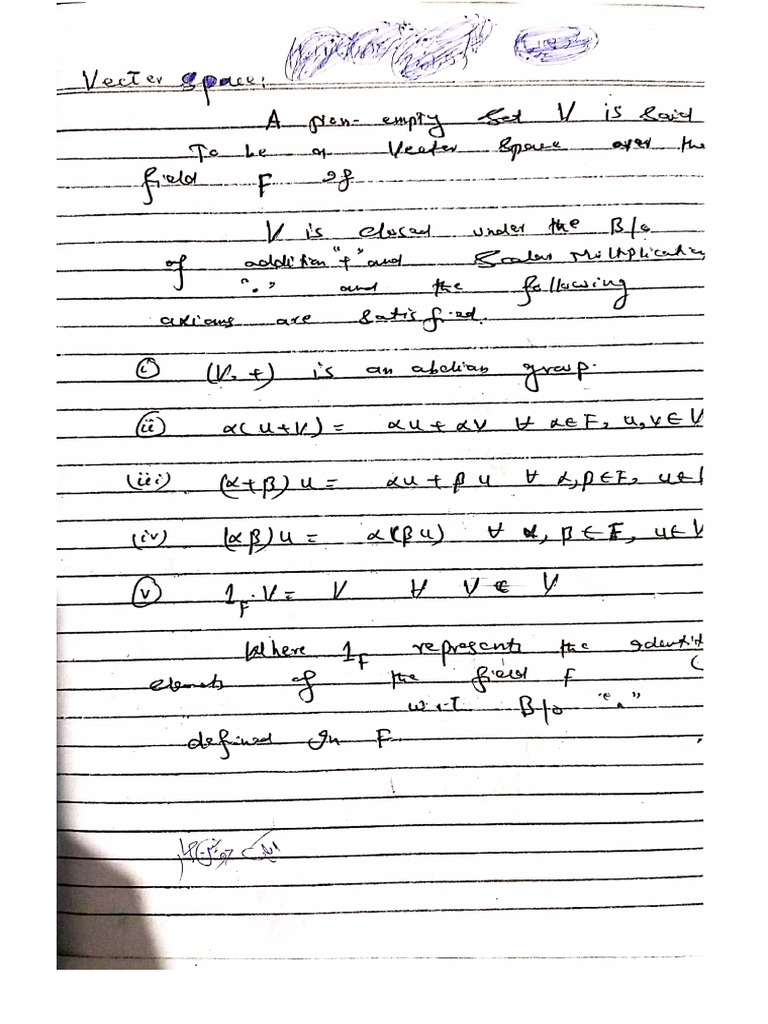 Vector Space:
A non-empty set V is said
To be a Vector Space over the
field F if
V is closed under the B/o
of addition "+" and Scalar Multiplication
"." and the following
axioms are satisfied.
(i) (V, +) is an abelian group.
(ii) α(u+v) = αu + αv ∀ α∈F, u,v∈V
(iii) (α+β)u = αu + βu ∀ α,β∈F, u∈
(iv) (αβ)u = α(βu) ∀ α, β∈F, u∈V
(v) 1_F.V = V ∀ V ∈ V
Where 1_F represents the identit
elements of the field F
w.r.t B/o "."
defined in F